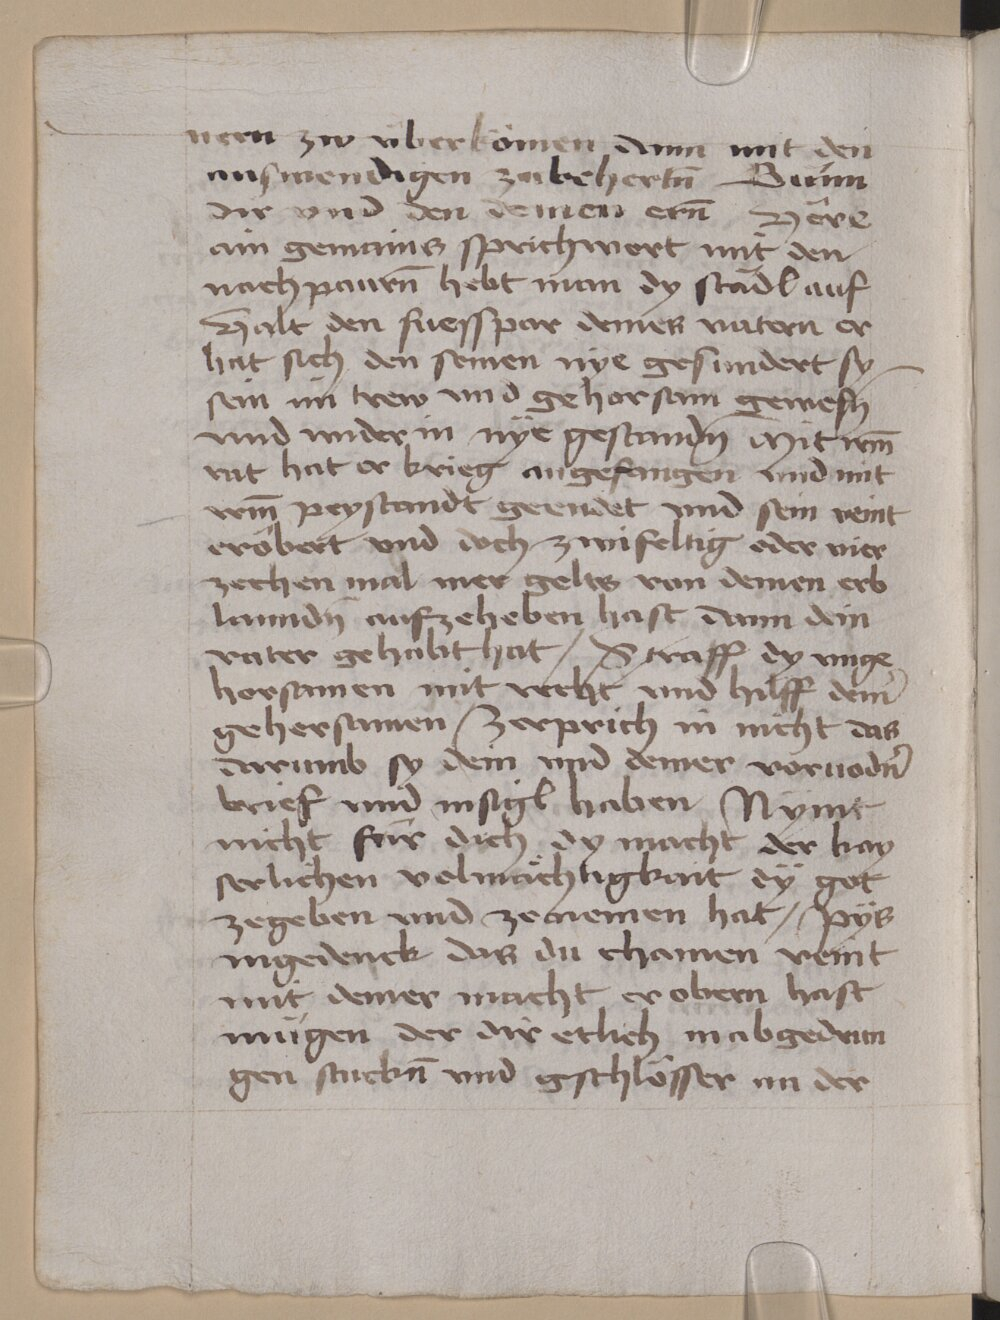 nern zw überkömen dann mit den
auswendigen zubehertn̄ Bürnn
dir vnd den deinen ern̄ Here
ain gemains sprichwort mit den
nachpaurn̄ hebt man dy städl auf
Halt den fuesspar deines vatern er
hat sich den seinen nye gesundert sy
sein im trew vnd gehorsam gewesn̄
vnd vnder in nÿe gestandn̄ Mit irm̄
rat hat er krieg angefangen vnd mit
irm̄ peystandt geendet vnd sein veint
erobert vnd doch zwifeltig oder vier
zechen mal mer gelts von deinen erb
lanndn̄ aufzeheben hast dann dein
vater gehabt hat / Straff dy unge
horsamen mit recht vnd hilff dein̄
gehorsamen / Zerprich in nicht das
darumb sy dein vnd deiner voruodn̄
brief vnd insigl haben Nÿmt
nicht für dich dy macht der kay
serlichen volmächtigkait dÿ got
zegeben vnd zenemen hat / Pÿs
ingedenck das du chainen veint
mit deiner macht erobern hast
mügen der dir etlich inabgedrun
gen stuckn̄ vnd gschlösser an der